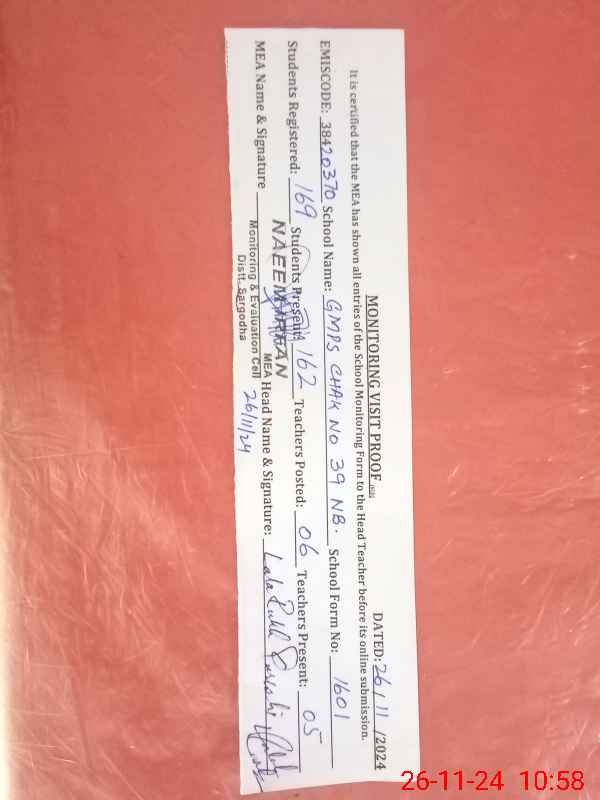 MONITORING VISIT PROOF DATED: 26/11/2024
It is certified that the MEA has shown all entries of the School Monitoring Form to the Head Teacher before its online submission.
EMISCODE: 38420370 School Name: GMPS CHAK NO 39 NB. School Form No: 1601
Students Registered: 169 Students Present: 162 Teachers Posted: 06 Teachers Present: 05
MEA Name & Signature NAEEM IRFAN MEA Head Name & Signature: Lala Rukh
Monitoring & Evaluation Cell
Distt. Sargodha
26/11/24
26-11-24 10:58